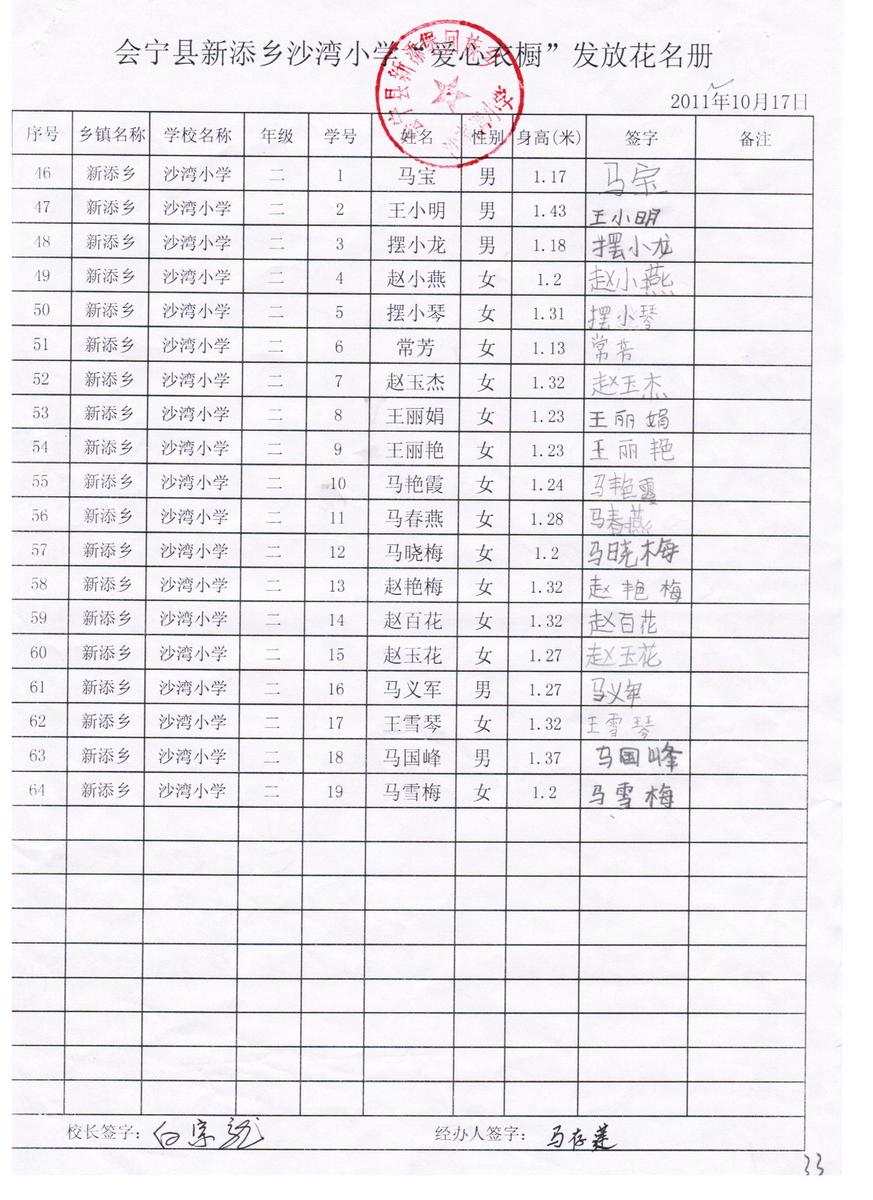 会宁县新添乡沙湾小学“爱心衣橱”发放花名册
2011年10月17日
序号 乡镇名称 学校名称 年级 学号 姓名 性别 身高(米) 签字 备注
46 新添乡 沙湾小学 二 1 马宝 男 1.17 马宝
47 新添乡 沙湾小学 二 2 王小明 男 1.43 王小明
48 新添乡 沙湾小学 二 3 摆小龙 男 1.18 摆小龙
49 新添乡 沙湾小学 二 4 赵小燕 女 1.2 赵小燕
50 新添乡 沙湾小学 二 5 摆小琴 女 1.31 摆小琴
51 新添乡 沙湾小学 二 6 常芳 女 1.13 常芳
52 新添乡 沙湾小学 二 7 赵玉杰 女 1.32 赵玉杰
53 新添乡 沙湾小学 二 8 王丽娟 女 1.23 王丽娟
54 新添乡 沙湾小学 二 9 王丽艳 女 1.23 王丽艳
55 新添乡 沙湾小学 二 10 马艳霞 女 1.24 马艳霞
56 新添乡 沙湾小学 二 11 马春燕 女 1.28 马春燕
57 新添乡 沙湾小学 二 12 马晓梅 女 1.2 马晓梅
58 新添乡 沙湾小学 二 13 赵艳梅 女 1.32 赵艳梅
59 新添乡 沙湾小学 二 14 赵百花 女 1.32 赵百花
60 新添乡 沙湾小学 二 15 赵玉花 女 1.27 赵玉花
61 新添乡 沙湾小学 二 16 马义军 男 1.27 马义军
62 新添乡 沙湾小学 二 17 王雪琴 女 1.32 王雪琴
63 新添乡 沙湾小学 二 18 马国峰 男 1.37 马国峰
64 新添乡 沙湾小学 二 19 马雪梅 女 1.2 马雪梅
校长签字: 经办人签字: 马存莲
33